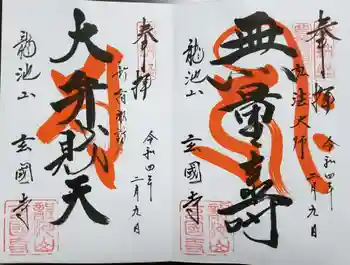 奉拝
弘法大師
無量寿
龍池山
玄國寺
令和四年
二月九日
奉拝
大弁財天
龍池山
玄國寺
令和四年
二月九日